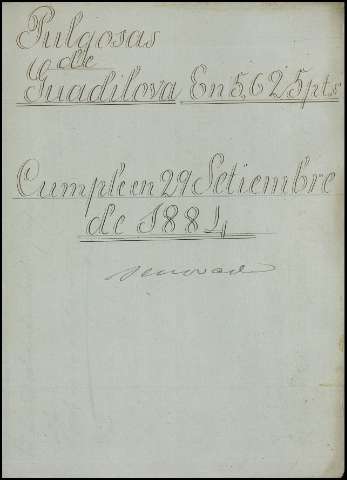 Pulgosas
de
Guadilova En 5,625 pts
Cumple en 29 Setiembre
de 1884
renovado